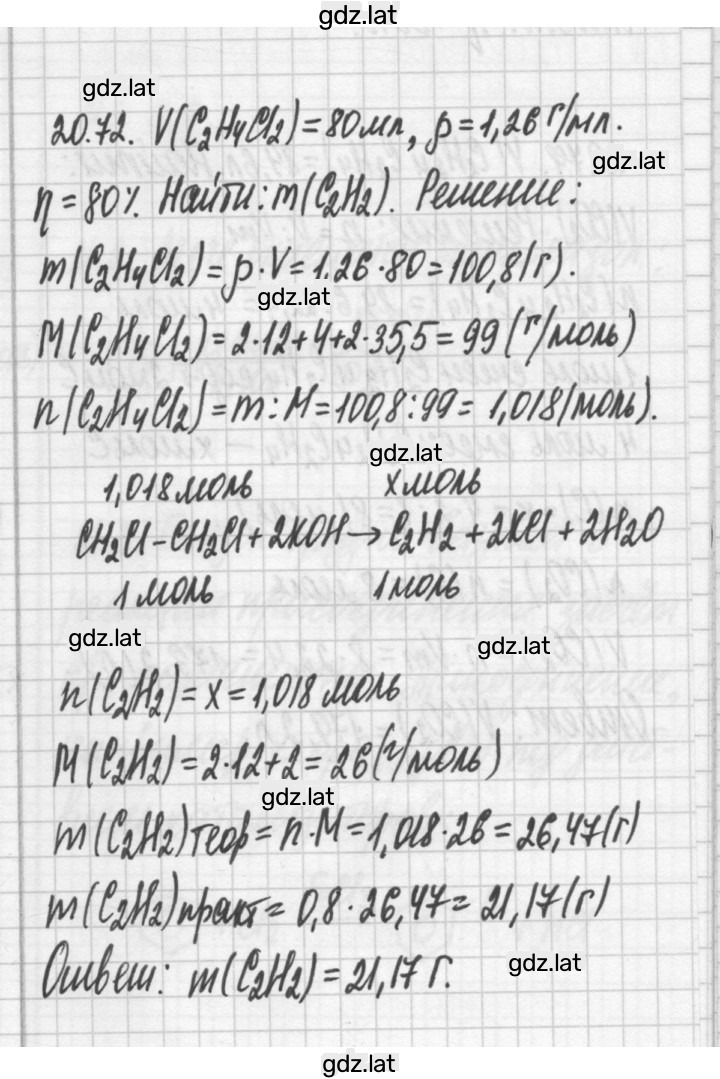 gdz.lat
gdz.lat
20.72. V(C₂H₄Cl₂) = 80 мл, ρ = 1,26 г/мл.
gdz.lat
η = 80%. Найти: m(C₂H₂). Решение:
m(C₂H₄Cl₂) = ρ · V = 1.26 · 80 = 100,8 (г).
gdz.lat
M(C₂H₄Cl₂) = 2·12+4+2·35,5 = 99 (г/моль)
n(C₂H₄Cl₂) = m : M = 100,8 : 99 = 1,018 (моль).
gdz.lat
1,018 моль x моль
CH₂Cl – CH₂Cl + 2KOH → C₂H₂ + 2KCl + 2H₂O
1 моль 1 моль
gdz.lat
gdz.lat
n(C₂H₂) = x = 1,018 моль
M(C₂H₂) = 2·12+2 = 26 (г/моль)
gdz.lat
m(C₂H₂)теор = n · M = 1,018 · 26 = 26,47 (г)
m(C₂H₂)практ = 0,8 · 26,47 = 21,17 (г)
Ответ: m(C₂H₂) = 21,17 г.
gdz.lat
gdz.lat